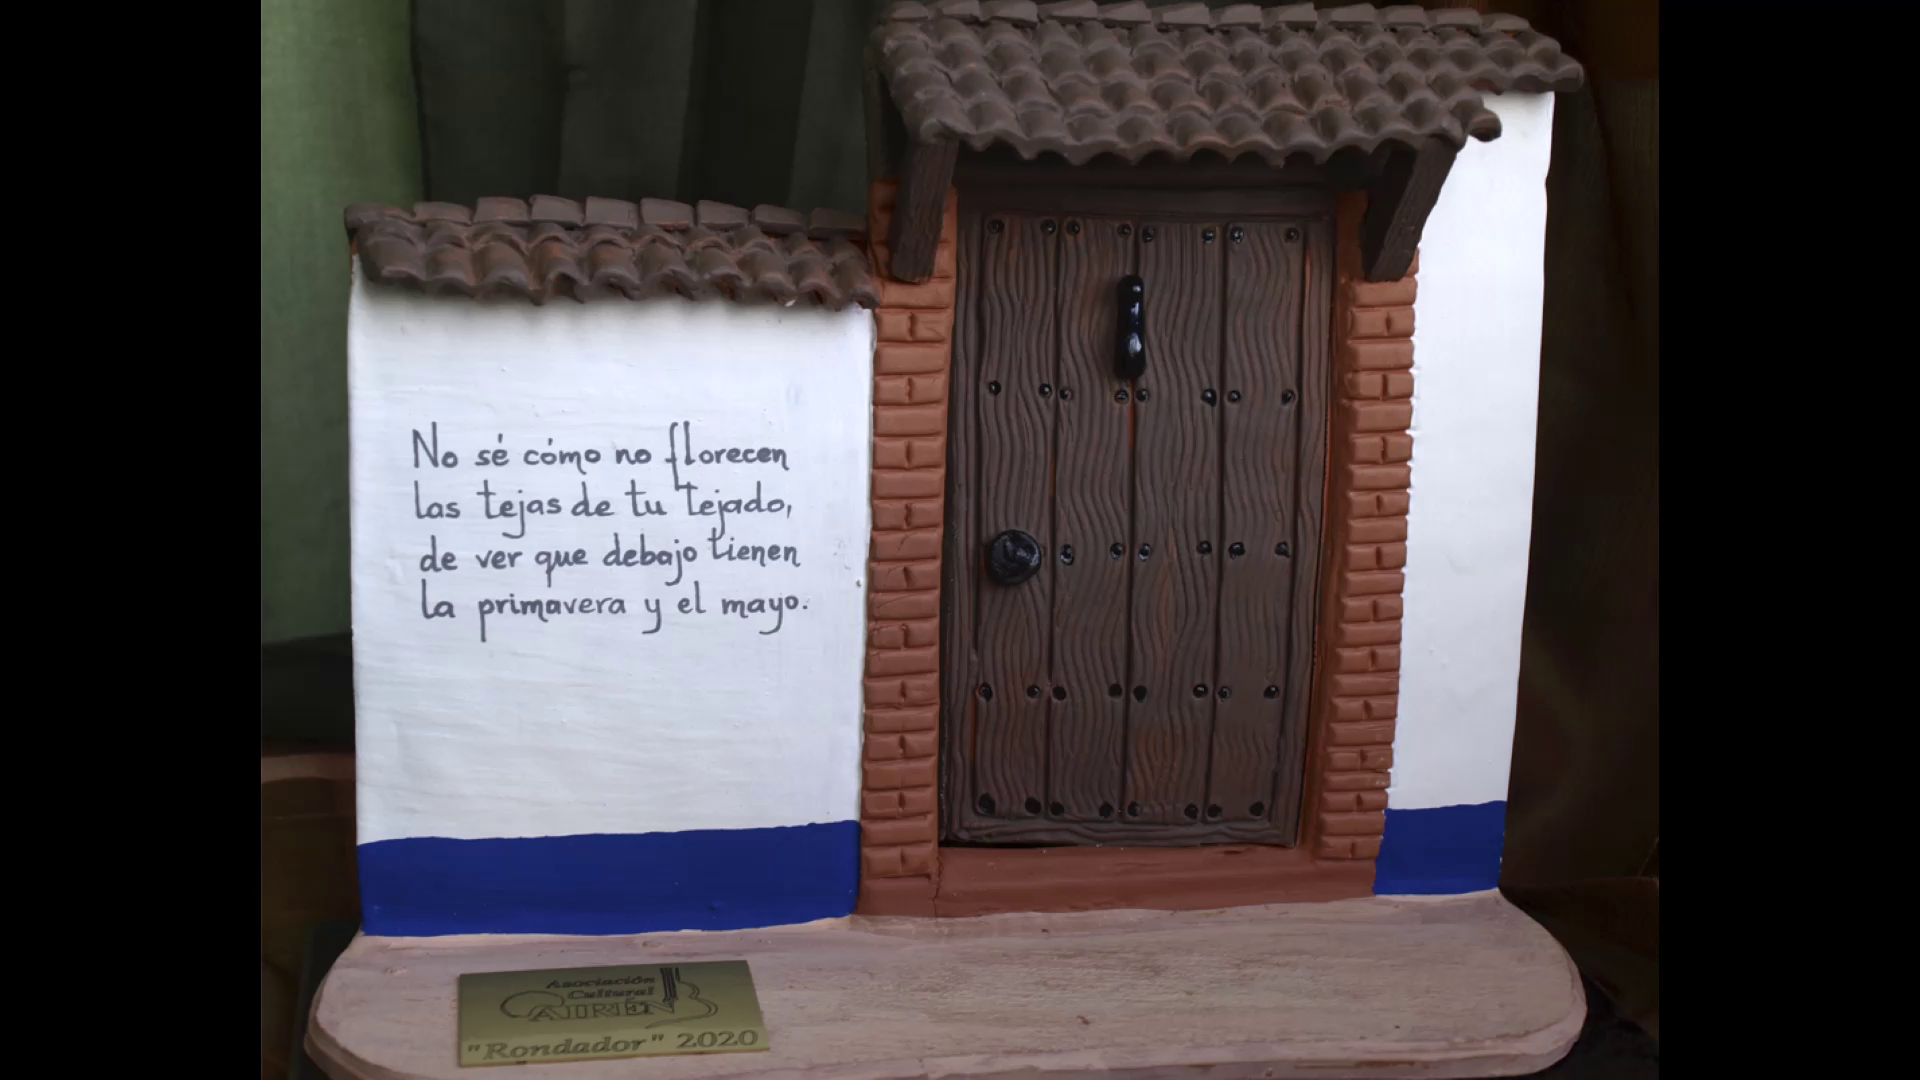 No sé cómo no florecen
las tejas de tu tejado,
de ver que debajo tienen
la primavera y el mayo.
Asociación
Cultural
AIRÉN
"Rondador" 2020